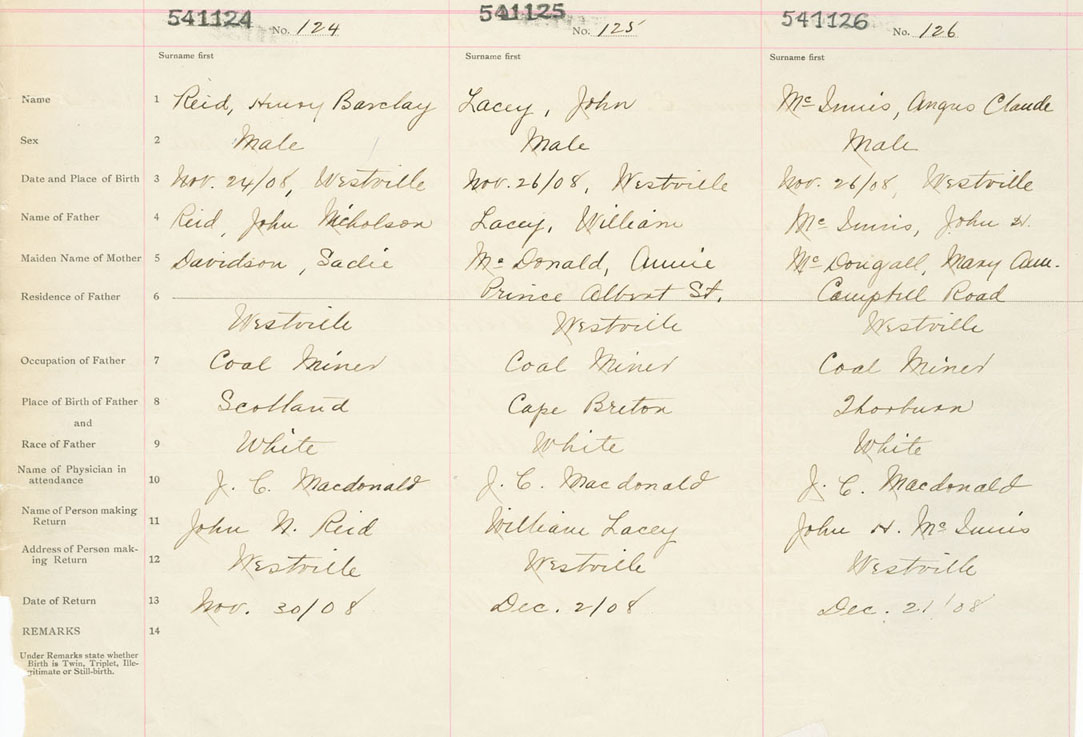 541124 No. 124 541125 No. 125 541126 No. 126
Surname first Surname first Surname first
Name 1 Reid, Henry Barclay Lacey, John McInnis, Angus Claude
Sex 2 Male Male Male
Date and Place of Birth 3 Nov. 24/08, Westville Nov. 26/08, Westville Nov. 26/08, Westville
Name of Father 4 Reid, John Nicholson Lacey, William McInnis, John H.
Maiden Name of Mother 5 Davidson, Sadie McDonald, Annie McDougall, Mary Ann.
Residence of Father 6 Prince Albert St. Campbell Road
Westville Westville Westville
Occupation of Father 7 Coal Miner Coal Miner Coal Miner
Place of Birth of Father 8 Scotland Cape Breton Thorburn
and
Race of Father 9 White White White
Name of Physician in
attendance 10 J. C. Macdonald J. C. Macdonald J. C. Macdonald
Name of Person making
Return 11 John N. Reid William Lacey John H. McInnis
Address of Person mak-
ing Return 12 Westville Westville Westville
Date of Return 13 Nov. 30/08 Dec. 2/08 Dec. 21/08
REMARKS 14
Under Remarks state whether
Birth is Twin, Triplet, Ille-
gitimate or Still-birth.